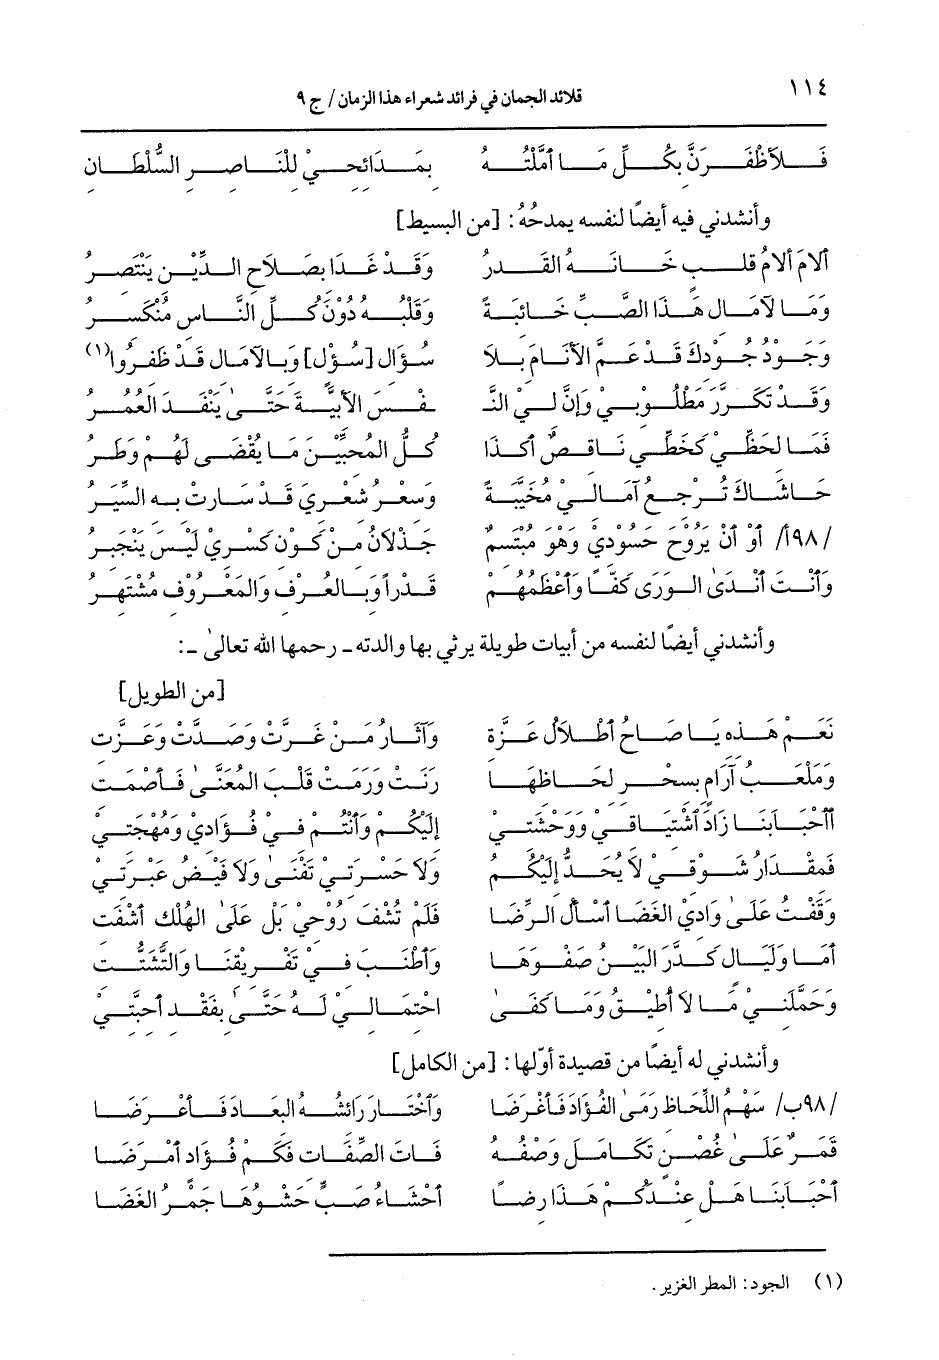 ١١٤
قلائد الجمان في فرائد شعراء هذا الزمان / ج ٩
فَلأَظْفَرَنَّ بِكُلِّ مَا أَمَّلْتُهُ بِمَدَائِحِيْ لِلنَّاصِرِ السُّلْطَانِ
وأنشدني فيه أيضاً لنفسه يمدحُهُ: [من البسيط]
أَلاَمَ أَلاَمُ قَلبٍ خَانَهُ القَدَرُ وَقَدْ غَدَا بِصَلاَحِ الدِّيْنِ يَنْتَصِرُ
وَمَا لآمَالِ هَذَا الصَّبِّ خَائِبَةً وَقَلْبُهُ دُوْنَ كُلِّ النَّاسِ مُنْكَسِرُ
وَجَوْدُ جُوْدِكَ قَدْ عَمَّ الأَنَامَ بِلاَ سُؤَالِ [سُؤْلٍ] وَبِالآمَالِ قَدْ ظَفِرُوا(١)
وَقَدْ تَكَرَّرَ مَطْلُوبِي وَإِنَّ لِيَ النَّـ ـفْسَ الأَبِيَّةَ حَتَّىٰ يَنْفَدَ العُمُرُ
فَمَا لِحَظِّيْ كَخَطِّي نَاقِصٌ أَكَذَا كُلُّ المُحِبِّيْنَ مَا يُقْضَى لَهُمْ وَطَرُ
حَاشَاكَ تُرْجِعُ آمَالِيْ مُخَيَّبَةً وَسِعْرُ شِعْرِيَ قَدْ سَارَتْ بِهِ السِّيَرُ
/٩٨أ/ أَوْ أَنْ يَرُوْحَ حَسُودِيْ وَهْوَ مُبْتَسِمٌ جَذْلاَنُ مِنْ كَوْنِ كَسْرِيْ لَيْسَ يَنْجَبِرُ
وَأَنْتَ أَنْدَىٰ الوَرَى كَفّاً وَأَعْظَمُهُمْ قَدْراً وَبِالعُرْفِ وَالمَعْرُوْفِ مُشْتَهِرُ
وأنشدني أيضاً لنفسه من أبيات طويلة يرثي بها والدته ـ رحمها الله تعالىٰ ـ:
[من الطويل]
نَعَمْ هَذِهِ يَا صَاحِ أَطْلاَلُ عَزَّةِ وَآثَارُ مَنْ غَرَّتْ وَصَدَّتْ وَعَزَّتِ
وَمَلْعَبُ آرَامٍ بِسِحْرِ لِحَاظِهَا رَنَتْ وَرَمَتْ قَلْبَ المُعَنَّىٰ فَأَصْمَتِ
أَأَحْبَابَنَا زَادَ أشْتِيَاقِيْ وَوَحْشَتِي إِلَيْكُمْ وَأَنْتُمْ فِي فُؤَادِيْ وَمُهْجَتِيْ
فَمِقْدَارُ شَوْقِيْ لاَ يُحَدُّ إِلَيْكُمُ وَلاَ حَسْرَتِيْ تَفْنَىٰ وَلاَ فَيْضُ عَبْرَتِيْ
وَقَفْتُ عَلَىٰ وَادِيْ الغَضَا أَسْأَلُ الرِّضَا فَلَمْ تُشْفَ رُوْحِيْ بَلْ عَلَىٰ الهُلْكِ أَشْفَتِ
أَمَا وَلَيَالٍ كَدَّرَ البَيْنُ صَفْوَهَا وَأَطْنَبَ فِيْ تَفْرِيْقِنَا وَالتَّشَتُّتِ
وَحَمَّلَنِيْ مَا لاَ أُطِيْقُ وَمَا كَفَىٰ احْتِمَالِيْ لَهُ حَتَّىٰ بِفَقْدِ أَحِبَّتِيْ
وأنشدني له أيضاً من قصيدة أوّلها: [من الكامل]
/٩٨ب/ سَهْمُ اللِّحَاظِ رَمَىٰ الفُؤَادَ فَأَغْرَضَا وَاَخْتَارَ رَائِشُهُ البِعَادَ فَأَعْرَضَا
قَمَرٌ عَلَىٰ غُصْنٍ تَكَامَلَ وَصْفُهُ فَاتَ الصِّفَاتِ فَكَمْ فُؤَادٍ أَمْرَضَا
أَحْبَابَنَا هَلْ عِنْدَكُمْ هَذَا رِضاً أَحْشَاءُ صَبٍّ حَشْوُهَا جَمْرُ الغَضَا
(١) الجود: المطر الغزير.